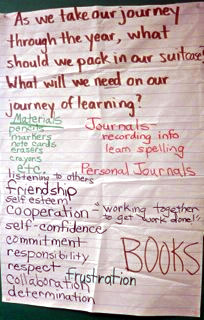 As we take our journey
through the year, what
should we pack in our suitcase?
What will we need on our
journey of learning?
Materials
pencils
markers
note cards
erasers
crayons
etc.
Journals
recording info
learn spelling
Personal Journals
listening to others
friendship
self esteem
cooperation - "working together
to get work done!"
self-confidence
commitment
responsibility
respect
frustration
collaboration
determination
BOOKS